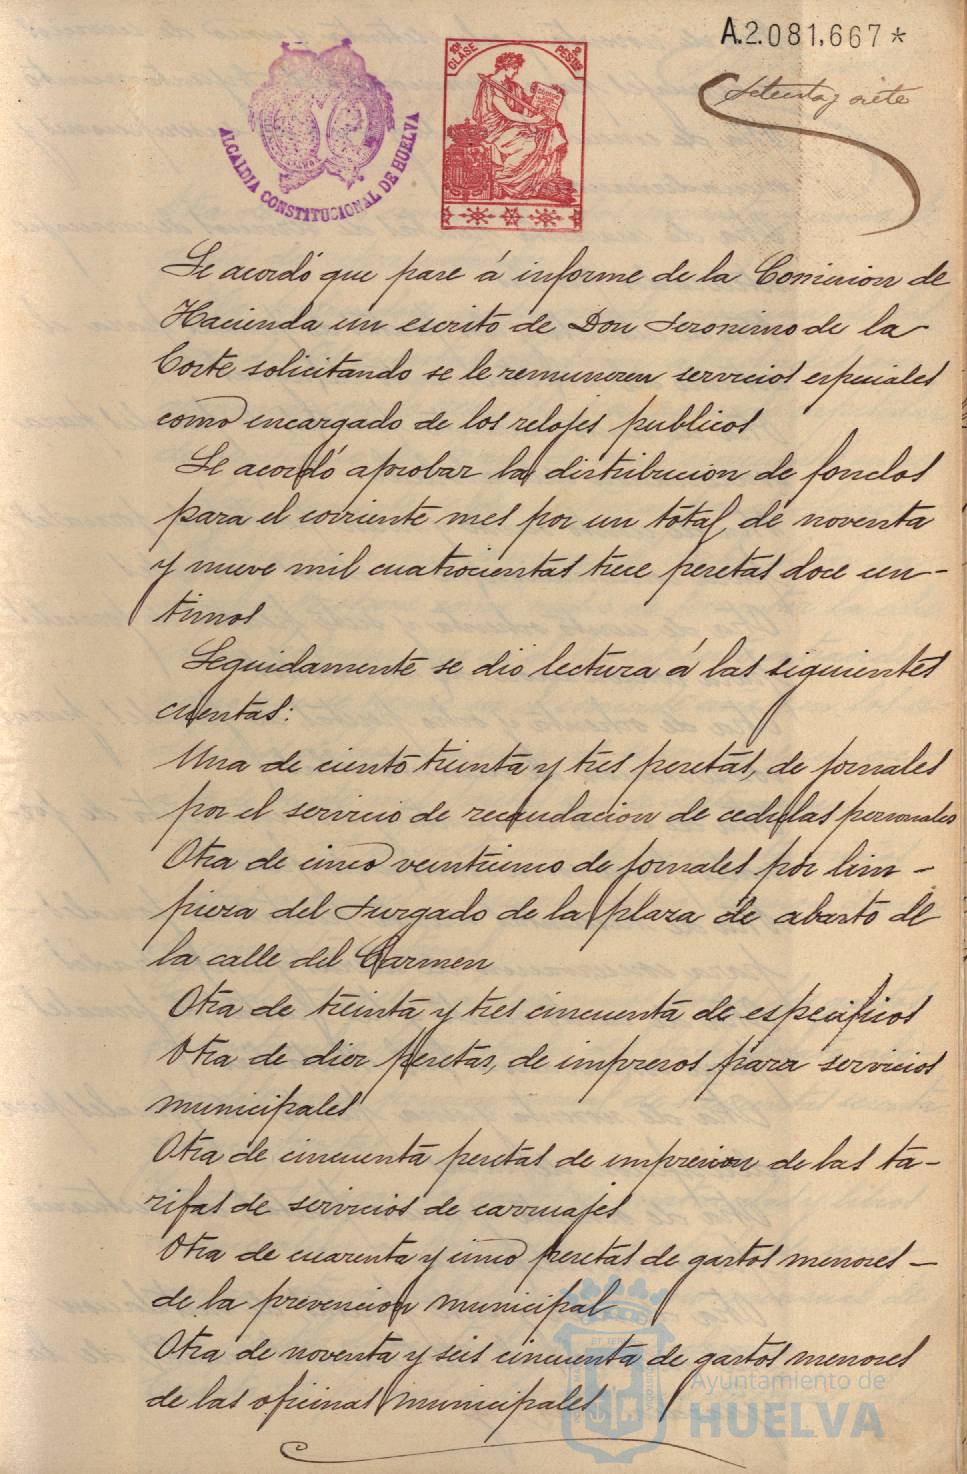 A.2.081,667*
Setenta y siete
10ª CLASE
2 PESTAS
ALCALDIA CONSTITUCIONAL DE HUELVA
Se acordó que pase á informe de la Comision de
Hacienda un escrito de Don Jeronimo de la
Corte solicitando se le remuneren servicios especiales
como encargado de los relojes publicos
Se acordó aprobar la distribucion de fondos
para el corriente mes por un total, de noventa
y nueve mil cuatrocientas trece pesetas doce cen-
timos
Seguidamente se dió lectura á las siguientes
cuentas:
Una de ciento treinta y tres pesetas, de jornales
por el servicio de recaudacion de cedulas personales
Otra de cinco veinticinco de jornales por lim-
pieza del Juzgado de la plaza de abasto de
la calle del Carmen
Otra de treinta y tres cincuenta de especificos
Otra de diez pesetas, de impresos para servicios
municipales
Otra de cincuenta pesetas de impresion de las ta-
rifas de servicios de carruajes
Otra de cuarenta y cinco pesetas de gastos menores
de la prevencion municipal
Otra de noventa y seis cincuenta de gastos menores
de las oficinas municipales
Ayuntamiento de
HUELVA